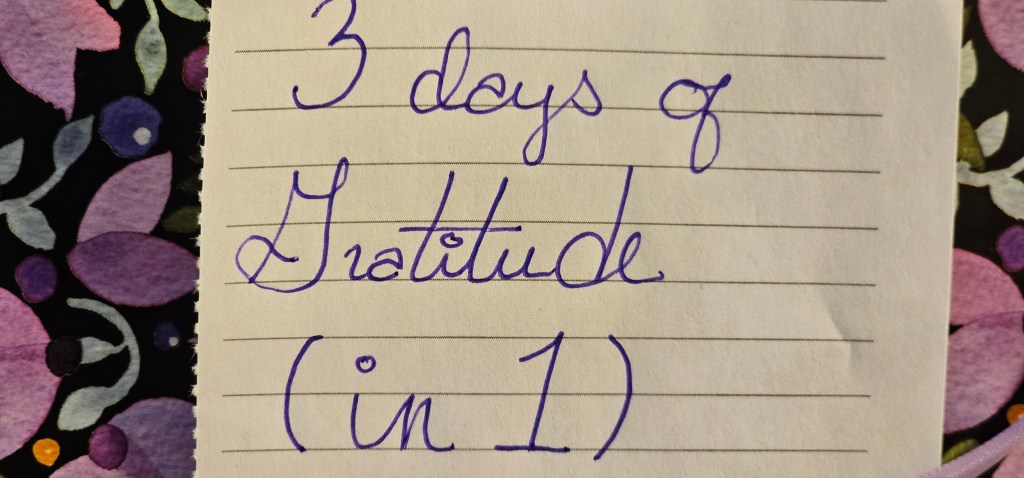 3 days of
Gratitude
(in 1)